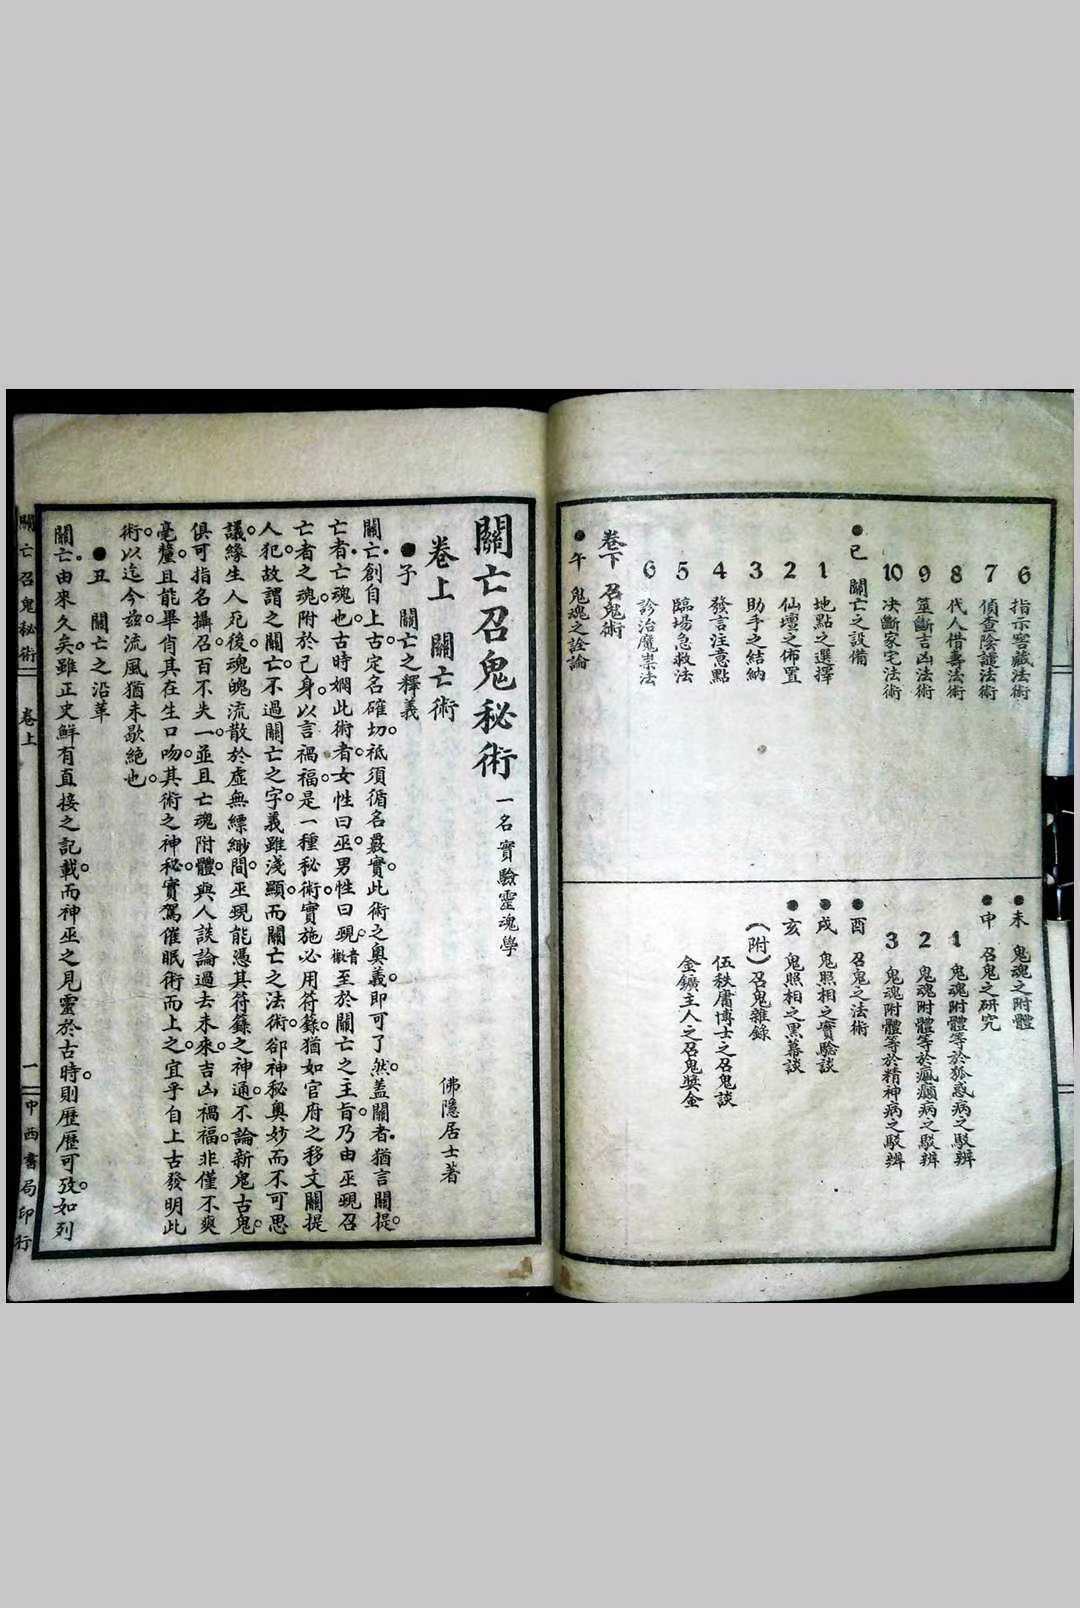 6 指示窖藏法術
7 偵查陰譴法術
8 代人借壽法術
9 筮斷吉凶法術
10 決斷家宅法術
●巳 關亡之設備
1 地點之選擇
2 仙壇之佈置
3 助手之結納
4 發言注意點
5 臨場急救法
6 診治魔祟法
卷下 召鬼術
●午 鬼魂之詮論
●未 鬼魂之附體
●申 召鬼之研究
1 鬼魂附體等於狐惑病之駁辨
2 鬼魂附體等於瘋癲病之駁辨
3 鬼魂附體等於精神病之駁辨
●酉 召鬼之法術
●戌 鬼照相之實驗談
●亥 鬼照相之黑幕談
(附)召鬼雜錄
伍秩庸博士之召鬼談
金鑛主人之召鬼獎金
關亡召鬼秘術 一名實驗靈魂學
卷上 關亡術 佛隱居士著
●子 關亡之釋義
關亡創自上古。定名確切。祇須循名覈實。此術之奧義。即可了然。蓋關者。猶言關提。
亡者。亡魂也。古時嫺此術者。女性曰巫。男性曰覡。至於關亡之主旨。乃由巫覡召
亡者之魂。附於己身。以言禍福。是一種秘術。實施必用符籙。猶如官府之移文關提
人犯。故謂之關亡。不過關亡之字義雖淺顯。而關亡之法術。卻神秘奧妙而不可思
議。緣生人死後。魂魄流散於虛無縹緲間。巫覡能憑其符籙之神通。不論新鬼古鬼。
俱可指名攝召。百不失一。並且亡魂附體。與人談論過去未來。吉凶禍福。非僅不爽
毫釐。且能畢肖其在生口吻。其術之神秘。實駕催眠術而上之。宜乎自上古發明此
術。以迄今茲。流風猶未歇絕也。
●丑 關亡之沿革
關亡由來久矣。雖正史鮮有直接之記載。而神巫之見靈於古時。則歷歷可攷。如列
關亡召鬼秘術 卷上 一 中西書局印行